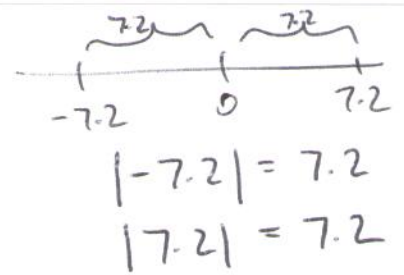 7.2 7.2
-7.2 0 7.2
|-7.2| = 7.2
|7.2| = 7.2